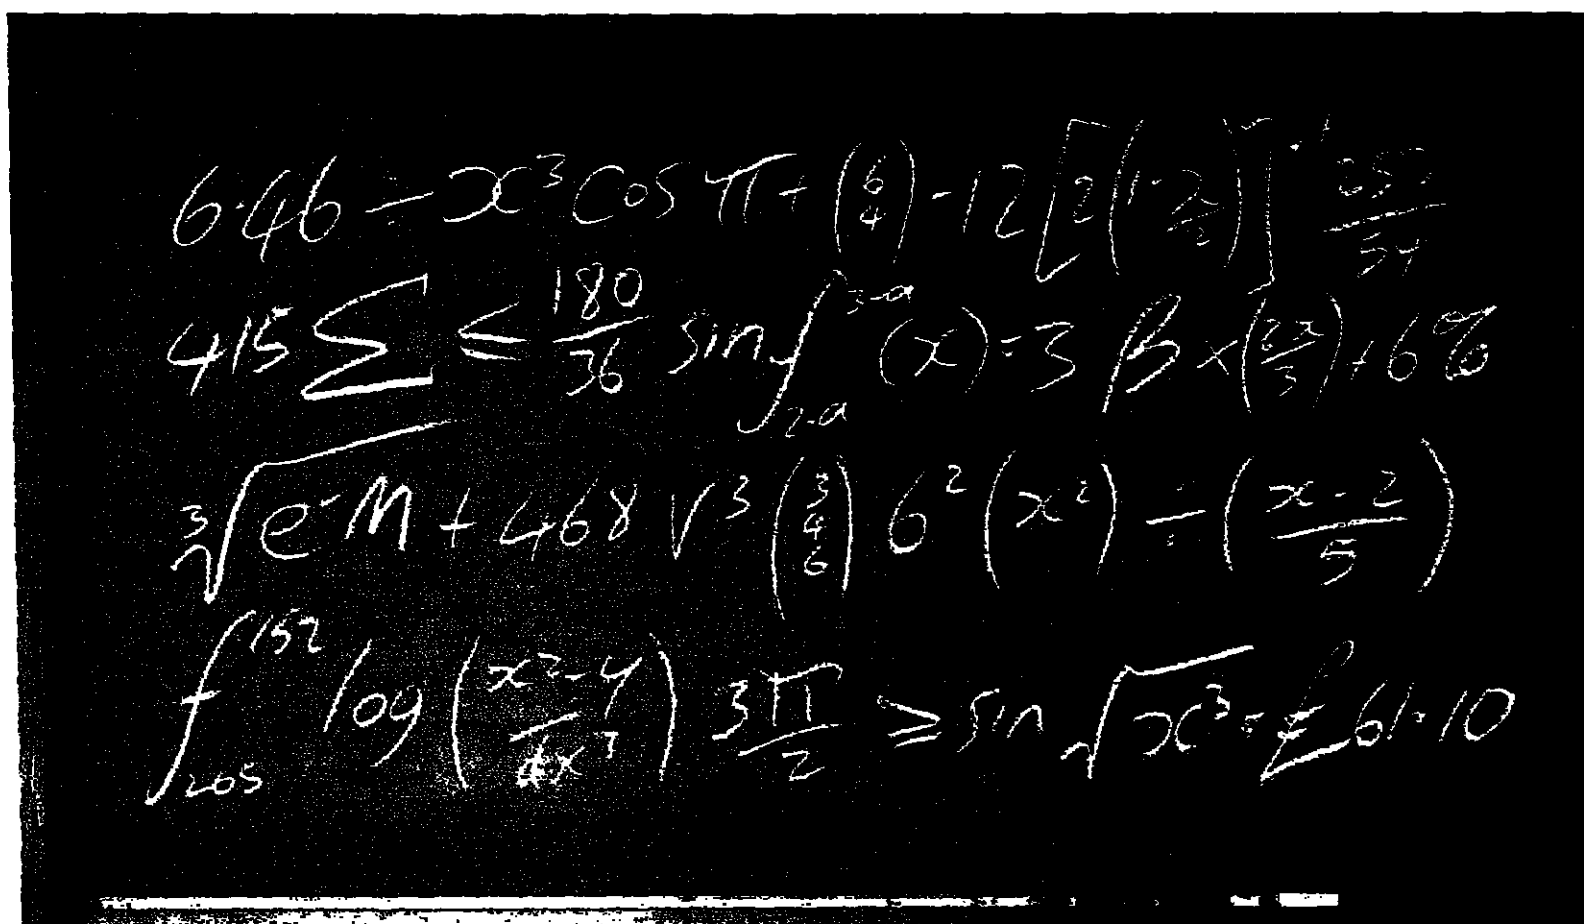 6.46 ÷ x³ cos π + (6 4) - 12 [2(1-
415 Σ ≤ 180/36 sin ∫ 2-a 3-a (x) = 3 β × (2x/3) + 6%
³√ e-M + 468 √ 3 (3 4 6) 6² (x²) ÷ (x - 2 / 5)
∫ 205 152 log (x² - 4 / 4x³) 3π/2 ≥ sin √ x³ - £61.10